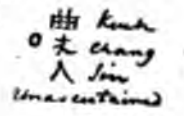 曲 Keuh
o Chang
人 Jin
Unascertained